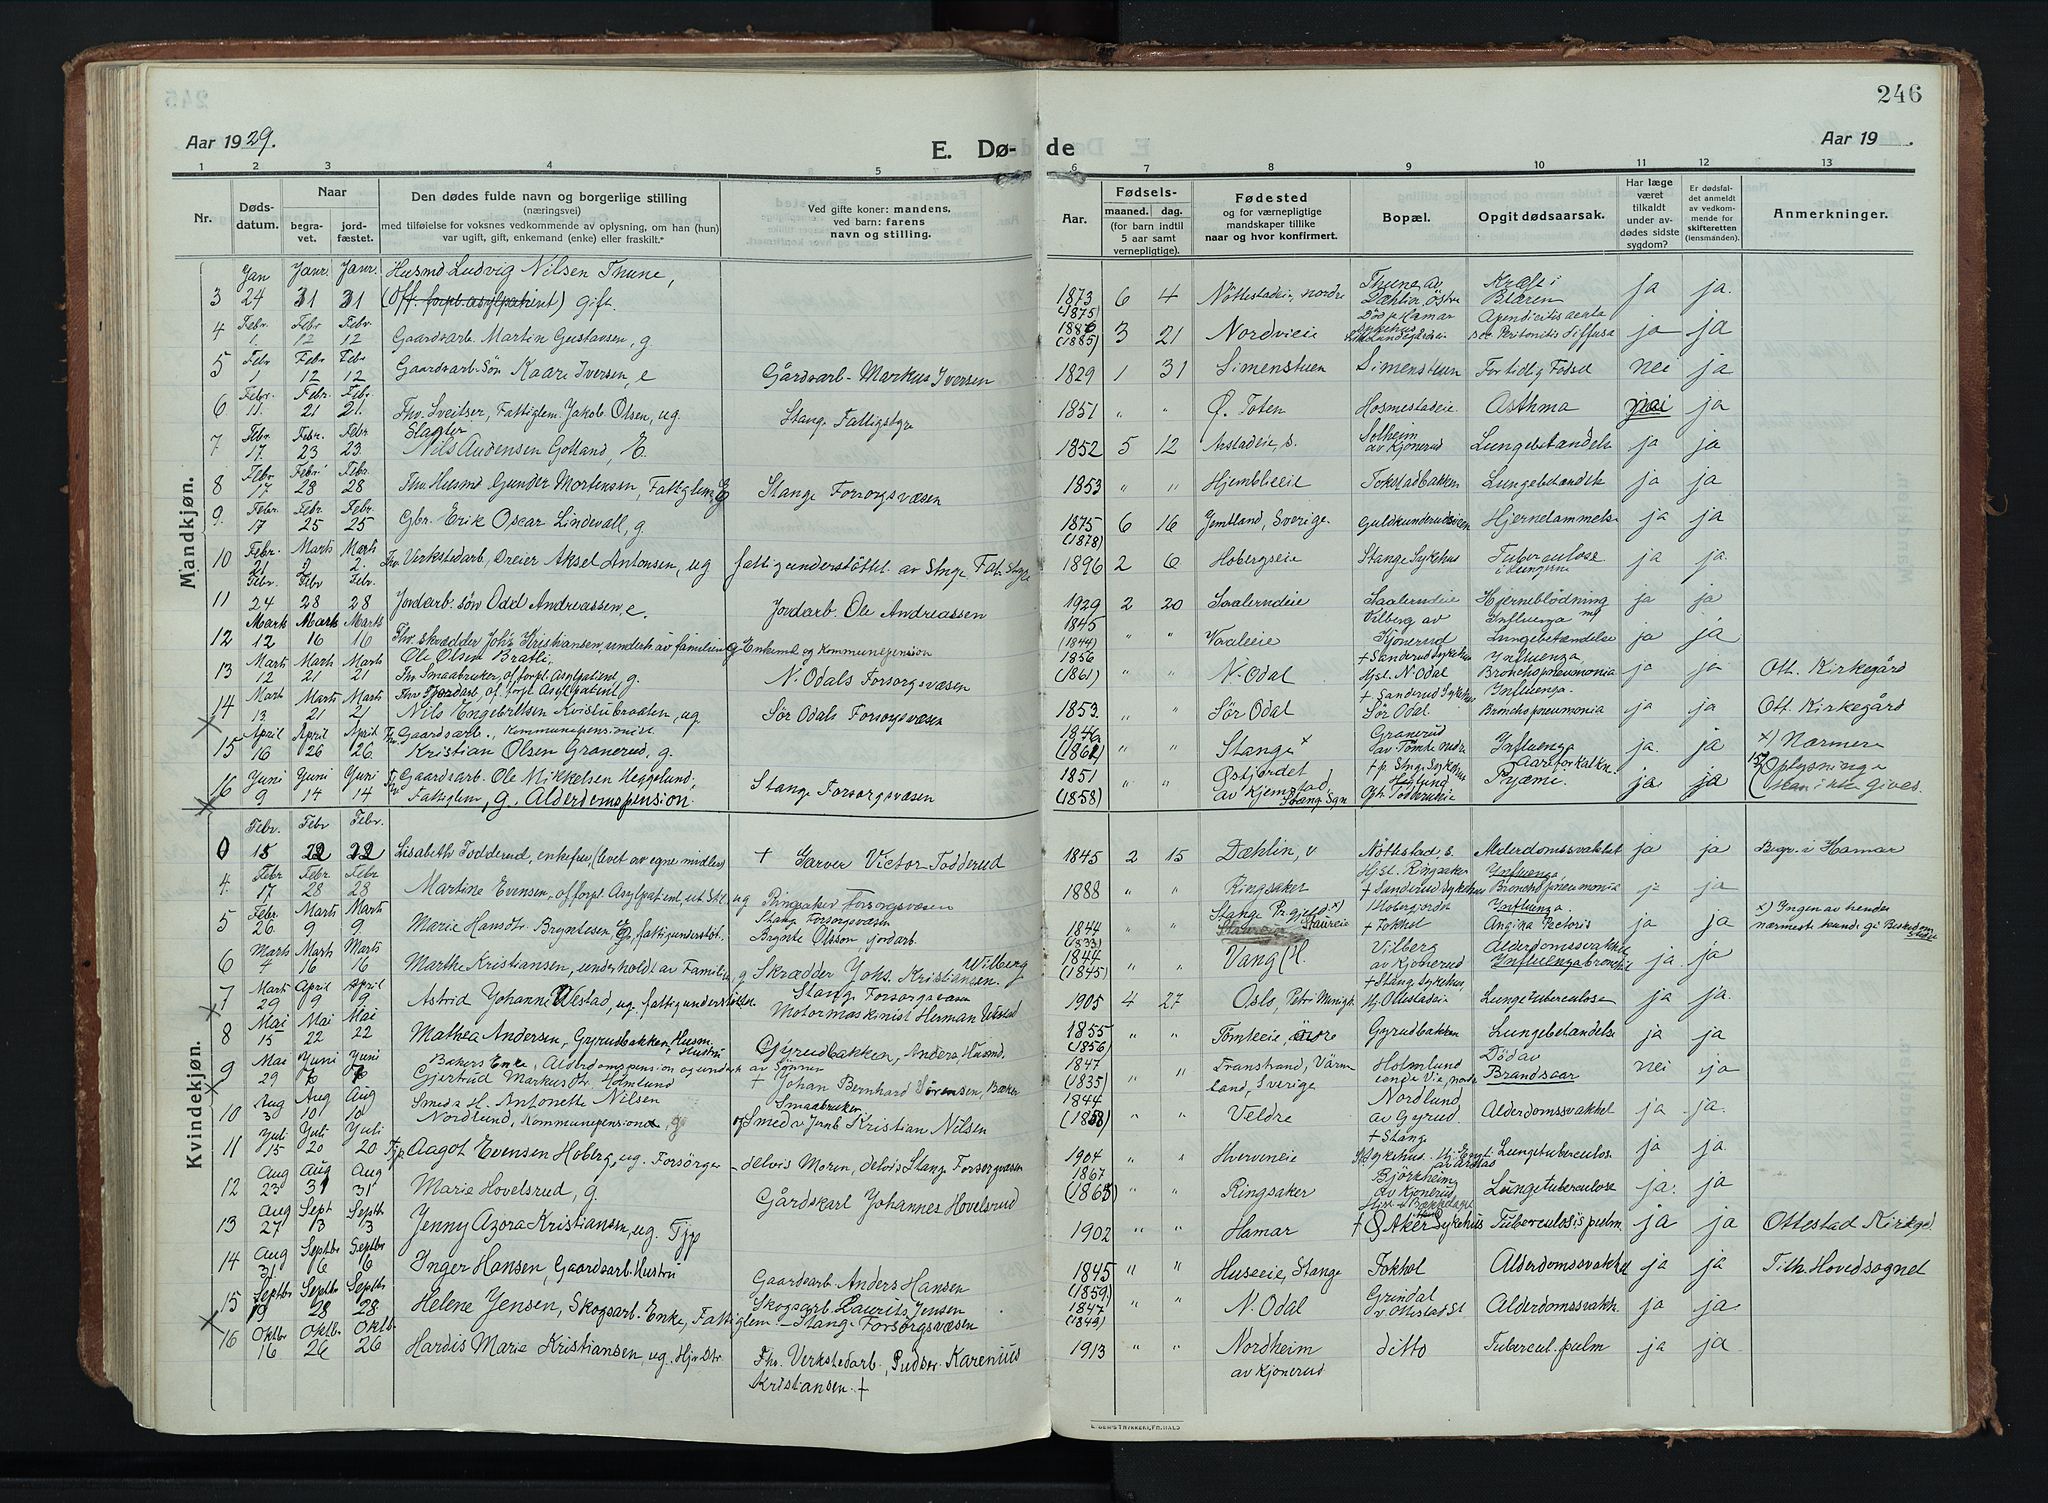 246
Aar 1929.
E. Dø- de
Aar 19 .
1 2 3 4 5 6 7 8 9 10 11 12 13
Nr.
Døds-
datum.
Naar
begra-
vet.
jord-
fæstet.
Den dødes fulde navn og borgerlige stilling
(næringsvei)
med tilføielse for voksnes vedkommende av oplysning, om han (hun)
var ugift, gift, enkemand (enke) eller fraskilt.*
Ved gifte koner: mandens,
ved barn: farens
navn og stilling.
Aar.
Fødsels-
maaned. dag.
(for barn indtil
5 aar samt
vernepligtige).
Fødested
og for værnepligtige
mandskaper tillike
naar og hvor konfirmert.
Bopæl.
Opgit dødsaarsak.
Har læge
været
tilkaldt
under av-
dødes sidste
sygdom?
Er dødsfal-
det anmeldt
av vedkom-
mende for
skifteretten
(lensmanden).
Anmerkninger.
Mandkjøn.
Jan Janr. Janr. Husmd Ludvig Nilsen Thune,
3 24 31 31 (Off. forpl. asylpatient) gift. 1873 (1875) 6 4 Nöttestadeie, nordre Thune av Dæhlin, östre Kræft i Blæren ja ja.
4 Febr. 1. Febr 12 Febr. 12 Gaardsarb. Martin Gustansen, g. 1886 (1885) 3 21 Nordvieie Död p Hamar Sykehus Apendicitis acuta sec Peritonitis diffusa ja ja
5 Febr 1 Febr 12 Febr 12 Gaardsarb. Søn Kaare Iversen, e Gårdsarb. Markus Iversen 1829 1 31 Simenstuen Simenstuen For tidlig Födsel nei ja
6 Febr. 11. Febr. 21 Febr. 21. Fhv. Sveitser, Fattiglem Jakob Olsen, ug. Stange Fattigstyre 1851 " " Ø. Toten Hosmestadeie. Asthma nei ja
7 Febr 17. Febr. 23 Febr 23. Slagter Nils Audensen Gotland, E. 1852 5 12 Arstadeie, s. Solheim av Kjonerud Lungebetændelse ja ja
8 Febr 17 Febr 28 Febr. 28 Fhv. Husmd Gunder Mortensen, Fattiglem, E Stange Forsorgsvæsen 1853 " " Hjemblieie Fokstadbakken Lungebetændelse ja ja
9. Febr. 17 Febr. 25 Febr. 25 Gbr. Erik Oscar Lindevall, g. 1875 (1878) 6 16 Jemtland, Sverige. Guldkunderudsveen Hjernelammelse ja ja
10 Febr. 21 Marts 2 Marts 2. Fhv Verkstedarb. Dreier Aksel Antonsen, ug fattigunderstöttet av Stnge Fat. Styre 1896 2 6 Hobergseie Stange Sykehus Tuberculose i Lungerne ja ja.
11 Febr. 24 Febr 28 Febr. 28 Jordarb. søn Odd Andreassen, e. Jordarb. Ole Andreassen 1929 2 20 Saalerudeie Saalerudeie Hjerneblödning ja ja
12 Marts 12 Marts 16 Marts 16 Fhv. skrædder Johs Kristiansen, underh. av familien g Enkemd og Kommunepension 1845 (1844) " " Vaaleeie Vilberg av Kjonerud Influenza m/ Lungebetændelse ja ja
13 Marts 12 Marts 21 Marts 21 Ole Olsen Bratli, Fhv. Smaabruker, of. forpl. Asylpatient, g. N. Odals Forsorgsvæsen 1856 (1861) " " N. Odal + Sanderud Sykehus Hjst. N. Odal Influenza Bronchopneumonia ja ja Ott. Kirkegård
14 Mart 13 Marts 21 Marts 21 Fhv. Jordarb. of. forpl. Asylpatient Nils Engebretsen Kvistubraaten, ug Sør Odals Forsorgsvæsen 1853. " " Sör Odal + Sanderud Sykehus Sör Odal Influenza. Bronchopneumonia ja ja Ott. Kirkegård
15 April 16 April 26 April 26 Fhv Gaardsarb., Kommunepensionist Kristian Olsen Granerud, g. 1846 (1862) " " Stange x Granerud av Tomte nedre Influenza ja. ja x) Nærmere
16 Juni 9 Juni 14 Juni 14 Fhv Gaardsarb. Ole Mikkelsen Heggelund, Fattiglem, g. Alderdomspension. Stange Forsorgsvæsen 1851 (1858) " " Østjordet av Kjemstad, Stang. Sgn + p. Stng. Sykehus Heglund Aareforkalkn. Pyæmi. ja ja Oplysninger kan ikke gives.
Kvindekjøn.
Febr. 15 Febr 22 Febr. 22 Lisabeth Todderud, enkefru, (levet av egne midler) + Garver Victor Todderud 1845 2 15 Dæhlin, v Nöttestad, s. Alderdomssvakhet ja ja Begr. i Hamar
4. Febr 17 Febr 28 Febr 28 Martine Evensen, of. forpl. Asylpatient, ut. Stil, ug Ringsaker Forsorgsvæsen 1888 " " Ringsaker Hjst. Ringsaker + Sanderud Sykehus Influenza, Bronchopneumonia ja ja
5 Febr. 26 Marts 9 Marts 9 Marie Hansdtr. Bryntesen, E, fattigunderstöt. Stang Forsorgsvæsen Brynte Olsson jordarb. 1844 (1833) " " Stange Pr.gjeld x) Staureie Hobergjordet + Fokhol Influenza. Angina Pectoris ja ja x) Ingen av hendes nærmeste kunde gi Beskjed om
6 Marts 4 Marts 16 Marts 16 Marthe Kristiansen, underholdt av Familien, g Skrædder Johs. Kristiansen Vilberg 1844 (1845) " " Vang (H. Vilberg av Kjonerud Alderdomssvakhet Influenzabronchit ja. ja
7 Marts 29 April 9 April 9 Astrid Johanne Ulvestad, ug. fattigunderstöttet. Stange Forsorgsvæsen Motormaskinist Herman Ulvestad 1905 4 27 Oslo, Petri Menigh. + Stang. Sykehus, Hj. Ottestadeie Lungetuberculose ja ja.
8 Mai 15 Mai 22 Mai 22 Mathea Andersen, Gyrudbakken, Husm. Hustru Gyrudbakken, Anders Husmd. 1855 (1856) " " Tomteeie, övre Gyrudbakken Lungebetændelse ja ja
9 Mai 29 Juni 6 Juni 6 Bakers Enke, Alderdomspension og underh. av Sönner Gjertrud Markusdtr. Holmlund + Johan Bernhard Sörensen, Baker 1847 (1835) " " Transtrand, Värmland, Sverige Holmlund Død av Brandsaar nei ja
10 Aug 3 Aug 10 Aug 10 Smeds H. Antonette Nilsen Nordlund, Kommunepension, g Smaabruker og Smed v. Jernb Kristian Nilsen 1844 (1858) " " Veldre Nordlund av Gyrud Alderdomssvakhet ja ja.
11 Juli 15 Juli 20 Juli 20 Tjp. Aagot Evensen Hoberg, ug. Forsörger – delvis Moren, delvis Stange Forsorgsvæsen 1904 " " Hverveneie + Stange Sykehus. Lungetuberculose ja ja
12 Aug 23 Aug 31 Aug 31 Marie Hovelsrud, g. Gårdskarl Johannes Hovelsrud 1867 (1865) " " Ringsaker Björkheim av Kjonerud Lungetuberculose ja. ja
13 Aug 27 Sept 3 Septb 3 Jenny Azora Kristiansen, ug. Tjp 1902 " " Hamar + Ø. Aker Sykehus Tuberculosis pulm. ja ja Ottestad Kirkegd
14 Aug 31 Septbr 6 Septbr 6 Inger Hansen, Gaardsarb. Hustru Gaardsarb Anders Hansen 1845 " " Huseeie, Stange Fokhol Alderdomssvakhet ja ja Tilh. Hovedsognet
15 Septbr 19 Septbr 28 Septbr 28 Helene Jensen, Skogsarb. Enke, Fattiglem. – Skogsarb. Laurits Jensen Stange Forsorgsvæsen (1859) 1847 (1843) " " N. Odal Grindal v Ottestad St Alderdomssvakh. ja ja
16 Oktbr 16 Oktbr. 26 Oktbr. 26 Hardis Marie Kristiansen, ug. Hjv. Dtr Fhv. Verkstedarb. Pudser. Karenius Kristiansen + 1913 " " Nordheim av Kjonerud ditto Tubercul. pulm ja ja